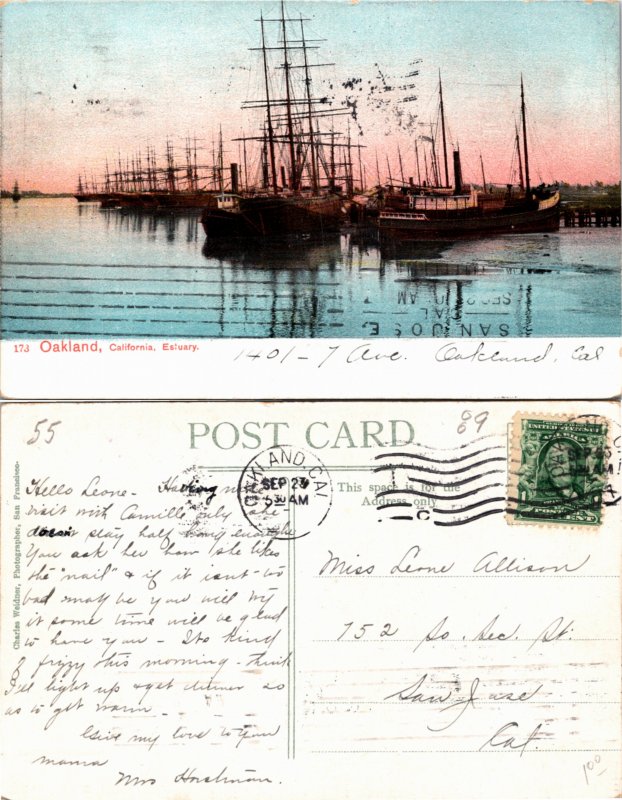 SAN JOSE
CAL
SEP 2
AM
173 Oakland, California, Estuary.
1401 - 7 Ave. Oakland, Cal
55
69
POST CARD.
OAKLAND, CAL
SEP 23
5 30 AM
UNITED STATES
1 1
POSTAGE
This space is for the
Address only.
Charles Weidner, Photographer, San Francisco-
Hello Leone - Having nice
visit with Camille only she
doesn't stay half long enough
You ask her how she likes
the "nail" & if it isn't to
bad may be you will try
it some time will be glad
to have you - Its kind
of frizzy this morning - think
I'll light up & get dinner so
as to get warm
Give my love to your
mama
Mrs
Miss Leone Allison
752 So. Sec. St.
San Jose
Cal.
1 00